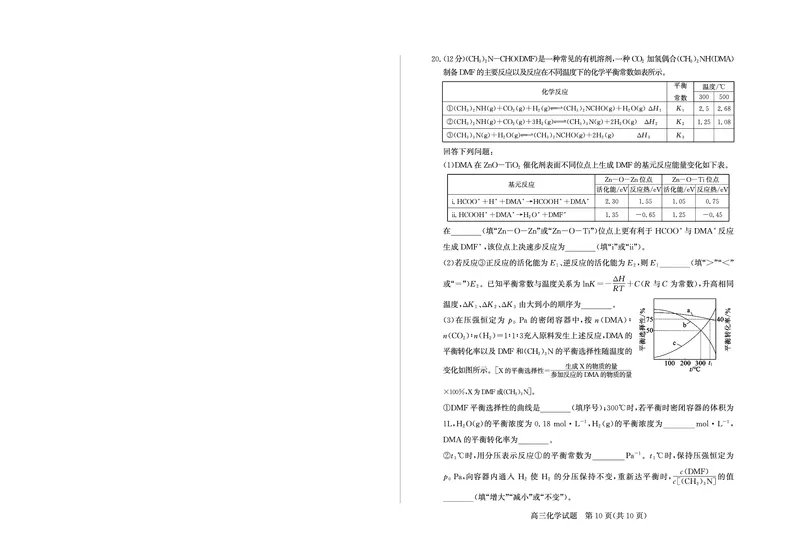 20.(12分)(CH₃)₂N—CHO(DMF)是一种常见的有机溶剂,一种CO₂加氢偶合(CH₃)₂NH(DMA)
制备DMF的主要反应以及反应在不同温度下的化学平衡常数如表所示。
化学反应 平衡常数 温度/℃
300 500
①(CH₃)₂NH(g)+CO₂(g)+H₂(g)⇌(CH₃)₂NCHO(g)+H₂O(g) ΔH₁ K₁ 2.5 2.68
②(CH₃)₂NH(g)+CO₂(g)+3H₂(g)⇌(CH₃)₃N(g)+2H₂O(g) ΔH₂ K₂ 1.25 1.08
③(CH₃)₃N(g)+H₂O(g)⇌(CH₃)₂NCHO(g)+2H₂(g) ΔH₃ K₃
回答下列问题:
(1)DMA在ZnO—TiO₂催化剂表面不同位点上生成DMF的基元反应能量变化如下表。
基元反应 Zn—O—Zn位点 Zn—O—Ti位点
活化能/eV 反应热/eV 活化能/eV 反应热/eV
i.HCOO*+H*+DMA*→HCOOH*+DMA* 2.30 1.55 1.05 0.75
ii.HCOOH*+DMA*→H₂O*+DMF* 1.35 -0.65 1.25 -0.45
在______(填“Zn—O—Zn”或“Zn—O—Ti”)位点上更有利于HCOO*与DMA*反应
生成DMF*,该位点上决速步反应为______(填“i”或“ii”)。
(2)若反应③正反应的活化能为E₁、逆反应的活化能为E₂,则E₁______(填“>”“<”
或“=”)E₂。已知平衡常数与温度关系为lnK=-ΔH/RT+C(R与C为常数),升高相同
温度,ΔK₁、ΔK₂、ΔK₃由大到小的顺序为______。
(3)在压强恒定为p₀ Pa的密闭容器中,按n(DMA):
n(CO₂):n(H₂)=1:1:3充入原料发生上述反应,DMA的
平衡转化率以及DMF和(CH₃)₃N的平衡选择性随温度的
变化如图所示。[X的平衡选择性=生成X的物质的量/参加反应的DMA的物质的量
×100%,X为DMF或(CH₃)₃N]。
平衡选择性/%
75
50
a
b
c
40
平衡转化率/%
100 200 300 t₁
t/℃
①DMF平衡选择性的曲线是______(填序号);300℃时,若平衡时密闭容器的体积为
1L,H₂O(g)的平衡浓度为0.18 mol·L⁻¹,H₂(g)的平衡浓度为______mol·L⁻¹,
DMA的平衡转化率为______。
②t₁℃时,用分压表示反应①的平衡常数为______Pa⁻¹。t₁℃时,保持压强恒定为
p₀ Pa,向容器内通入H₂使H₂的分压保持不变,重新达平衡时,c(DMF)/c[(CH₃)₃N]的值
______(填“增大”“减小”或“不变”)。
高三化学试题 第10页(共10页)